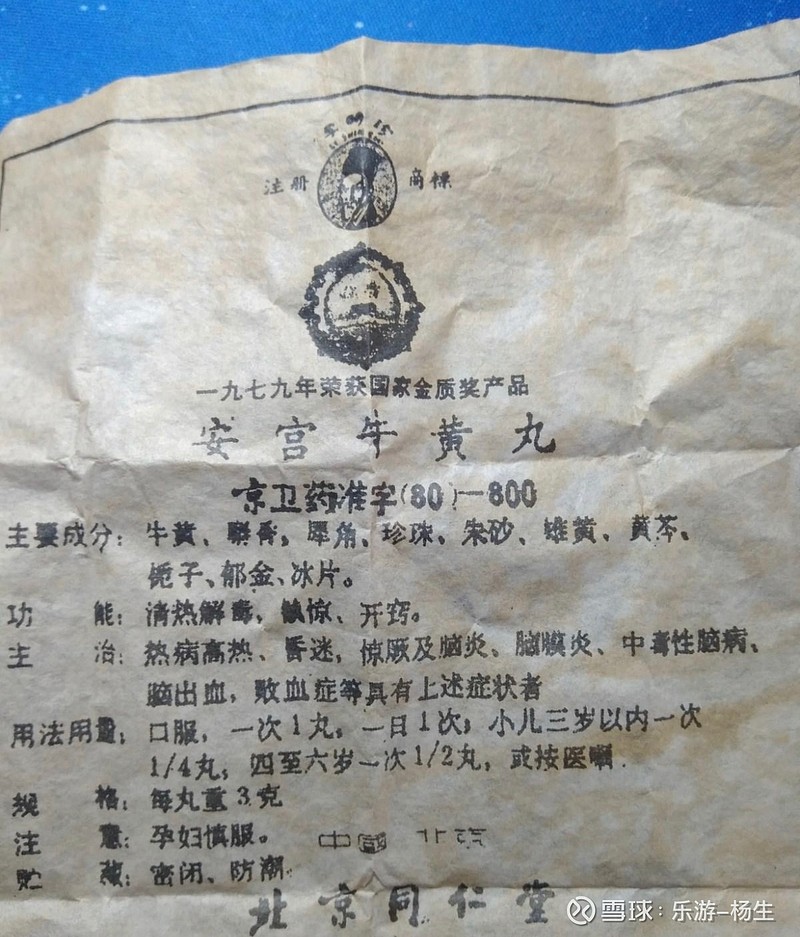 李时珍
LI SHIZHEN
注册 商标
一九七九年荣获国家金质奖产品
安宫牛黄丸
京卫药准字(80)—800
主要成分：牛黄、麝香，犀角、珍珠、朱砂、雄黄、黄芩、
栀子、郁金、冰片。
功能：清热解毒，镇惊、开窍。
主治：热病高热、昏迷，惊厥及脑炎、脑膜炎、中毒性脑病、
脑出血，败血症等具有上述症状者
用法用量：口服，一次1丸，一日1次；小儿三岁以内一次
1/4丸；四至六岁一次1/2丸，或按医嘱.
规格：每丸重3克
注意：孕妇慎服。 中国 北京
贮藏：密闭、防潮.
北京同仁堂
雪球：乐游-杨生